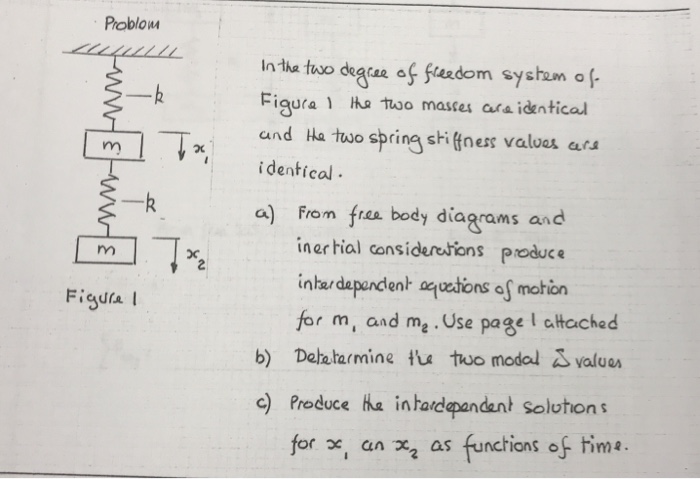 Problom
k
m
x₁
k
m
x₂
Figure 1
In the two degree of freedom system of
Figure 1 the two masses are identical
and the two spring stiffness values are
identical.
a) From free body diagrams and
inertial considerations produce
interdependent equations of motion
for m, and m₂. Use page 1 attached
b) Detetarmine the two modal values
c) Produce the interdependent solutions
for x₁ an x₂ as functions of time.